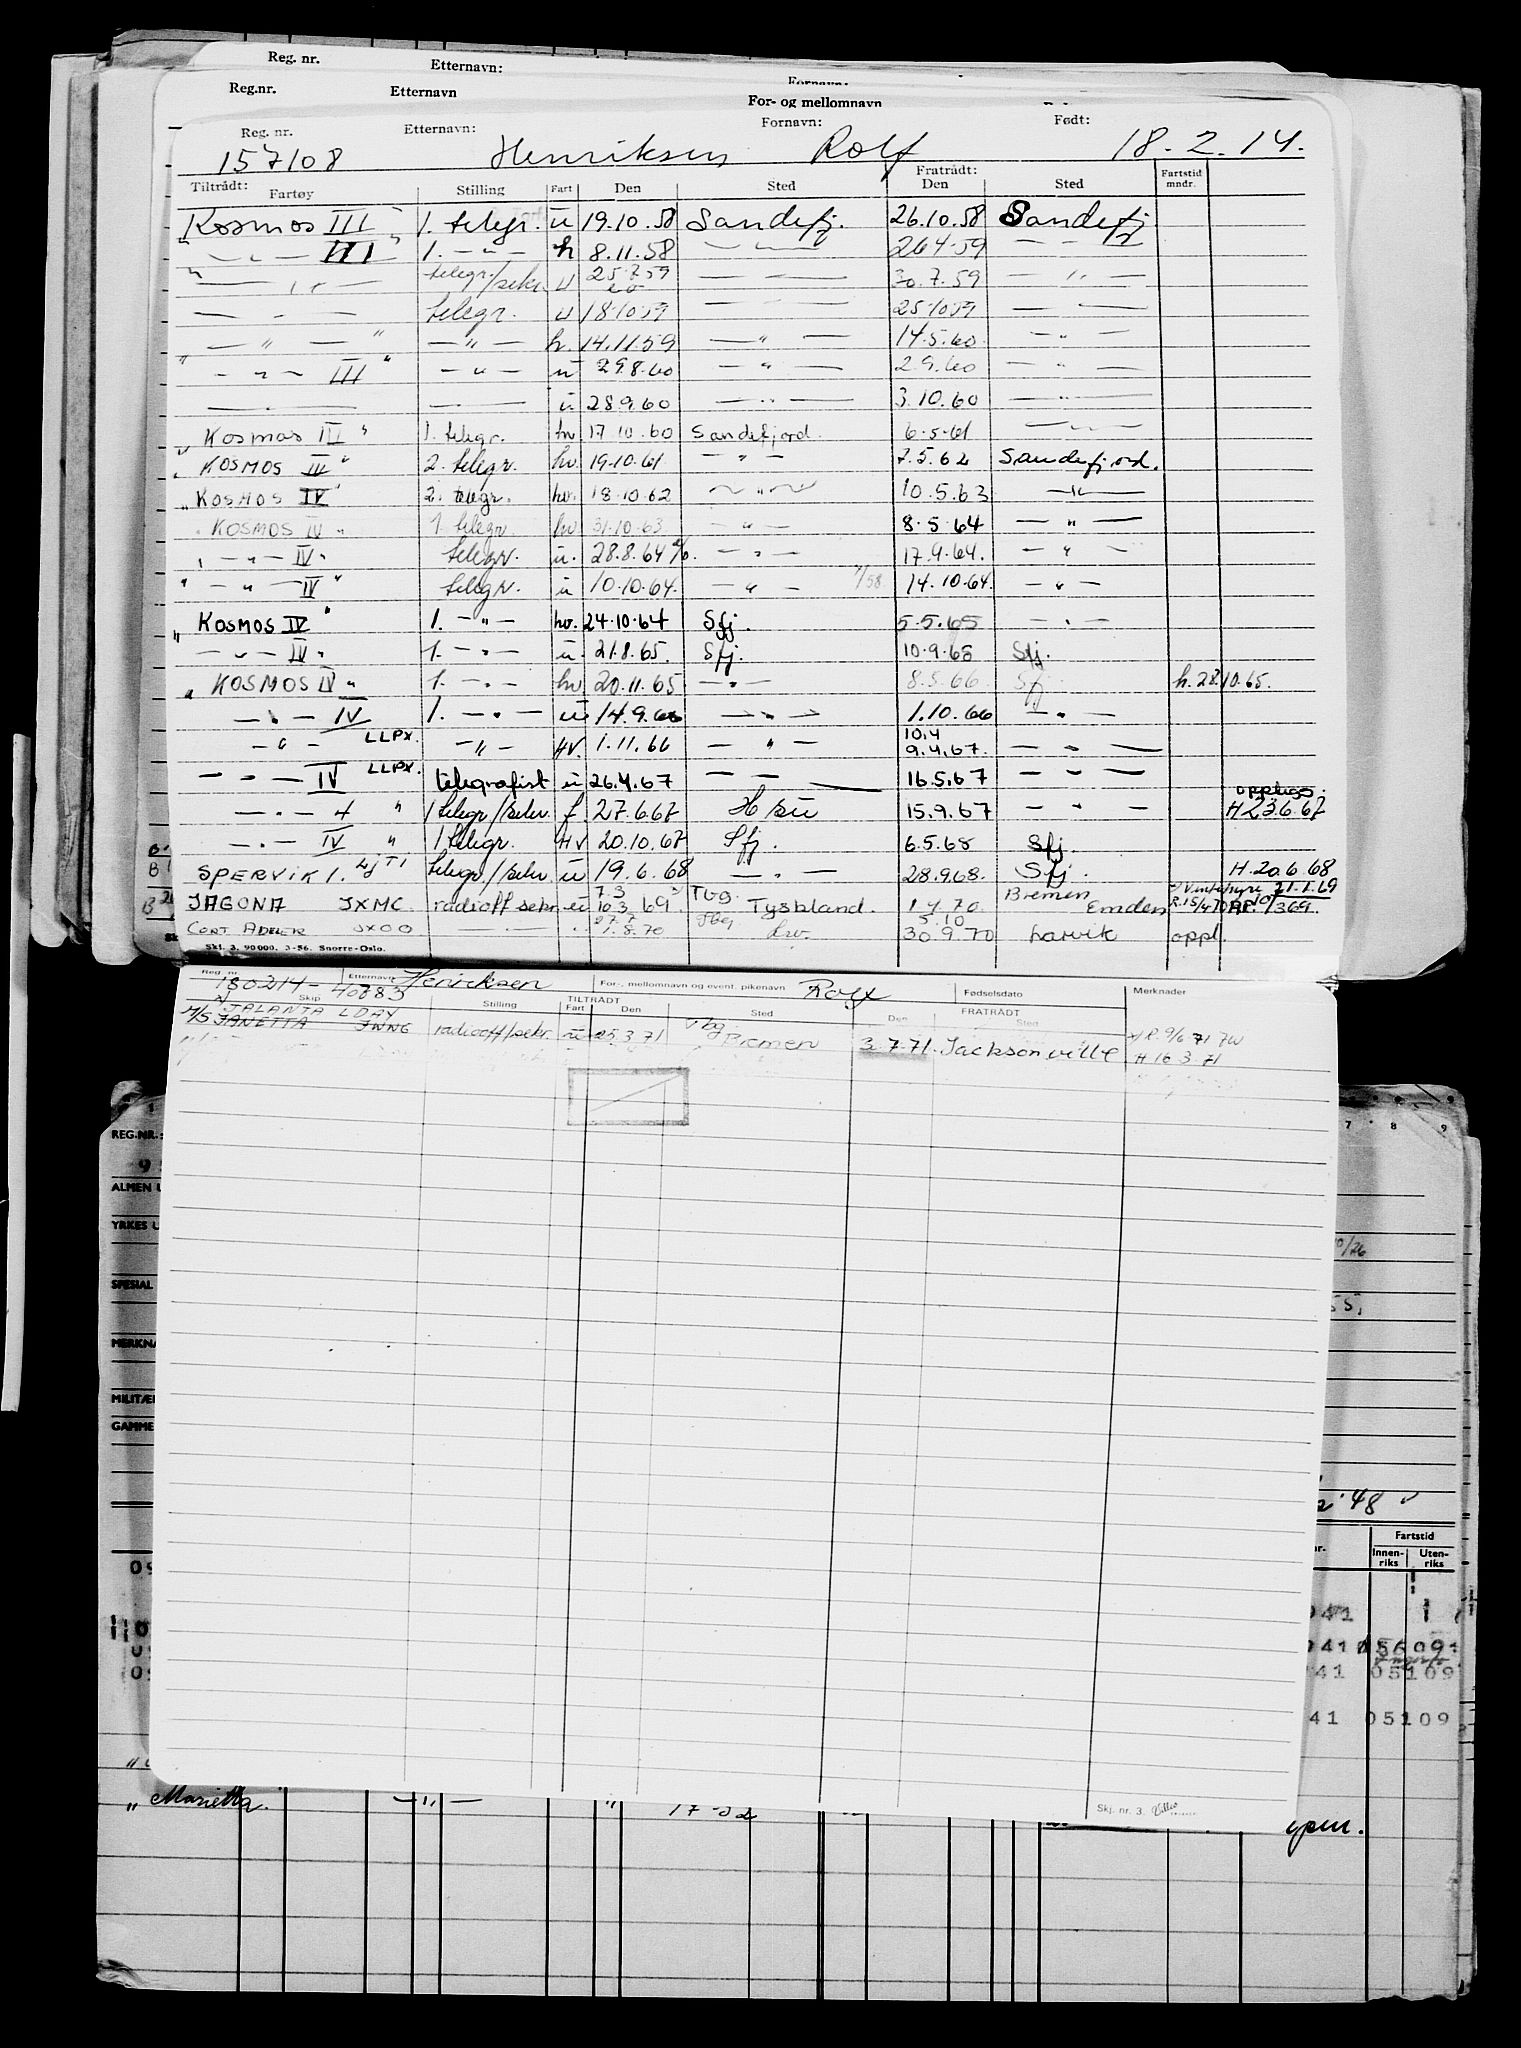 Reg. nr. Etternavn: Fornavn:
Reg.nr. Etternavn For- og mellomnavn
Reg. nr. Etternavn: Fornavn: Født:
157108 Henriksen Rolf 18.2.14.
Tiltrådt: Fratrådt: Fartstid mndr.
Fartøy Stilling Fart Den Sted Den Sted
Kosmos III 1. telegr. u 19.10.58 Sandefj. 26.10.58 Sandefj.
" — " — III " 1. — " — h 8.11.58 — " — 26.4.59 — " —
— " — telegr/sekr u 25.7.59 — " — 30.7.59 — " —
— " — telegr. u 18.10.59 — " — 25.10.59 — " —
— " — — " — h. 14.11.59 — " — 14.5.60 — " —
" — " — III " — " — u 29.8.60 — " — 2.9.60 — " —
— " — — " — u. 28.9.60 — " — 3.10.60 — " —
" Kosmos III " 1. telegr. hv 17.10.60 Sandefjord. 6.5.61 — " —
" KOSMOS IV " 2. telegr. hv. 19.10.61 — " — 7.5.62 Sandefjord.
" KOSMOS IV " 2. telegr. hv. 18.10.62 — " — 10.5.63 — " —
" KOSMOS IV " 1. telegr hv 31.10.63 — " — 8.5.64 — " —
" — " — IV " telegr. u. 28.8.64 — " — 17.9.64. — " —
" — " — IV " telegr. u 10.10.64. — " — 14.10.64. — " —
" KOSMOS IV " 1. — " — hv. 24.10.64 Sfj. 5.5.65 — " —
— " — IV " 1. — " — u. 21.8.65. Sfj. 10.9.65 Sfj.
" KOSMOS IV " 1. — " — hv 20.11.65 — " — 8.5.66 Sfj h. 28.10.65.
— " — IV 1. — " — u 14.9.66 — " — 1.10.66 — " —
— " — LLPX. — " — HV. 1.11.66 — " — 10.4 9.4.67. — " —
— " — IV LLPX. telegrafist u 26.4.67 — — 16.5.67 — " —
— " — 4 " 1 telegr/sekr f 27.6.67 15.9.67 — " — opplegg. H 23.6.67
— " — IV " 1 telegr. HV 20.10.67 Sfj. 6.5.68 Sfj.
SPERVIK 1. LJTI telegr/sekr u 19.6.68 — " — 28.9.68. Sfj. H. 20.6.68
JAGONA JXMC radioff sekr u 7.3 10.3 69. Tbg. Tyskland. 1.4.70. Bremen Emden 21.1.69
CORT ADELER JXOO — " — 27.7 1.8.70 Tbg 5.10 30.9.70 Larvik oppl.
Skj. 3. 90 000. 3-56. Snorre-Oslo.
Reg. nr. Etternavn For-, mellomnavn og event. pikenavn Fødselsdato Merknader
180214-40883 Henriksen Rolf
Skip Stilling TILTRÅDT Fart Den Sted FRATRÅDT Den Sted
JALANTA LDAY
M/S JANETTA JWNG radiooff/sekr. u 25.3.71 Tbg Bremen 3.7.71. Jacksonville R. 9/6 71
H 16.3.71
Skj. nr. 3.
REG.NR.: 7 8 9
ALMEN U
YRKES U
SPESIAL
MERKNA
MILITÆR
GAMME
'48
Fartstid
Innen- riks Uten- riks
941
41 05109
41 05109
" Marietta. — " — "